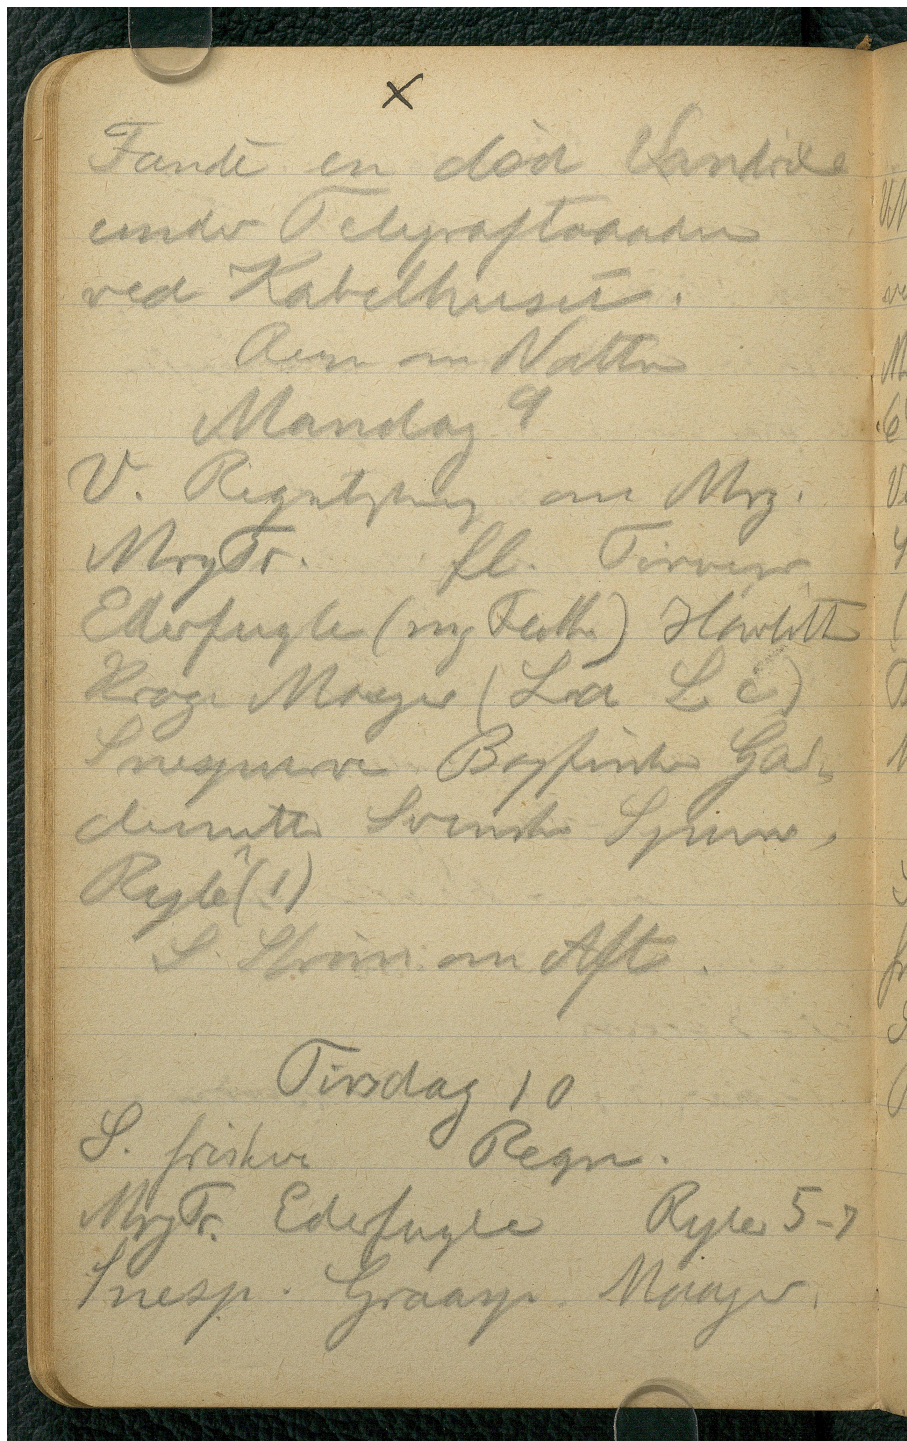 x
Fandt en död Vandrixe
under Telegraftraaden
ved Kabelhuset.
Regn om Natten
Mandag 9
V. Regntykning om Mrg.
MrgTr. fl. Terner
Ederfugle (ng Flokke) Havlitt
Krage Maager (La Lc)
Snespurve Bogfinke Gal.
dematter Svenske Spurve,
Ryle (1)
S. Storm om Aft.
Tirsdag 10
S. friskere Regn.
MrgTr. Ederfugle Ryler 5-7
Snesp. Graasp. Maager.